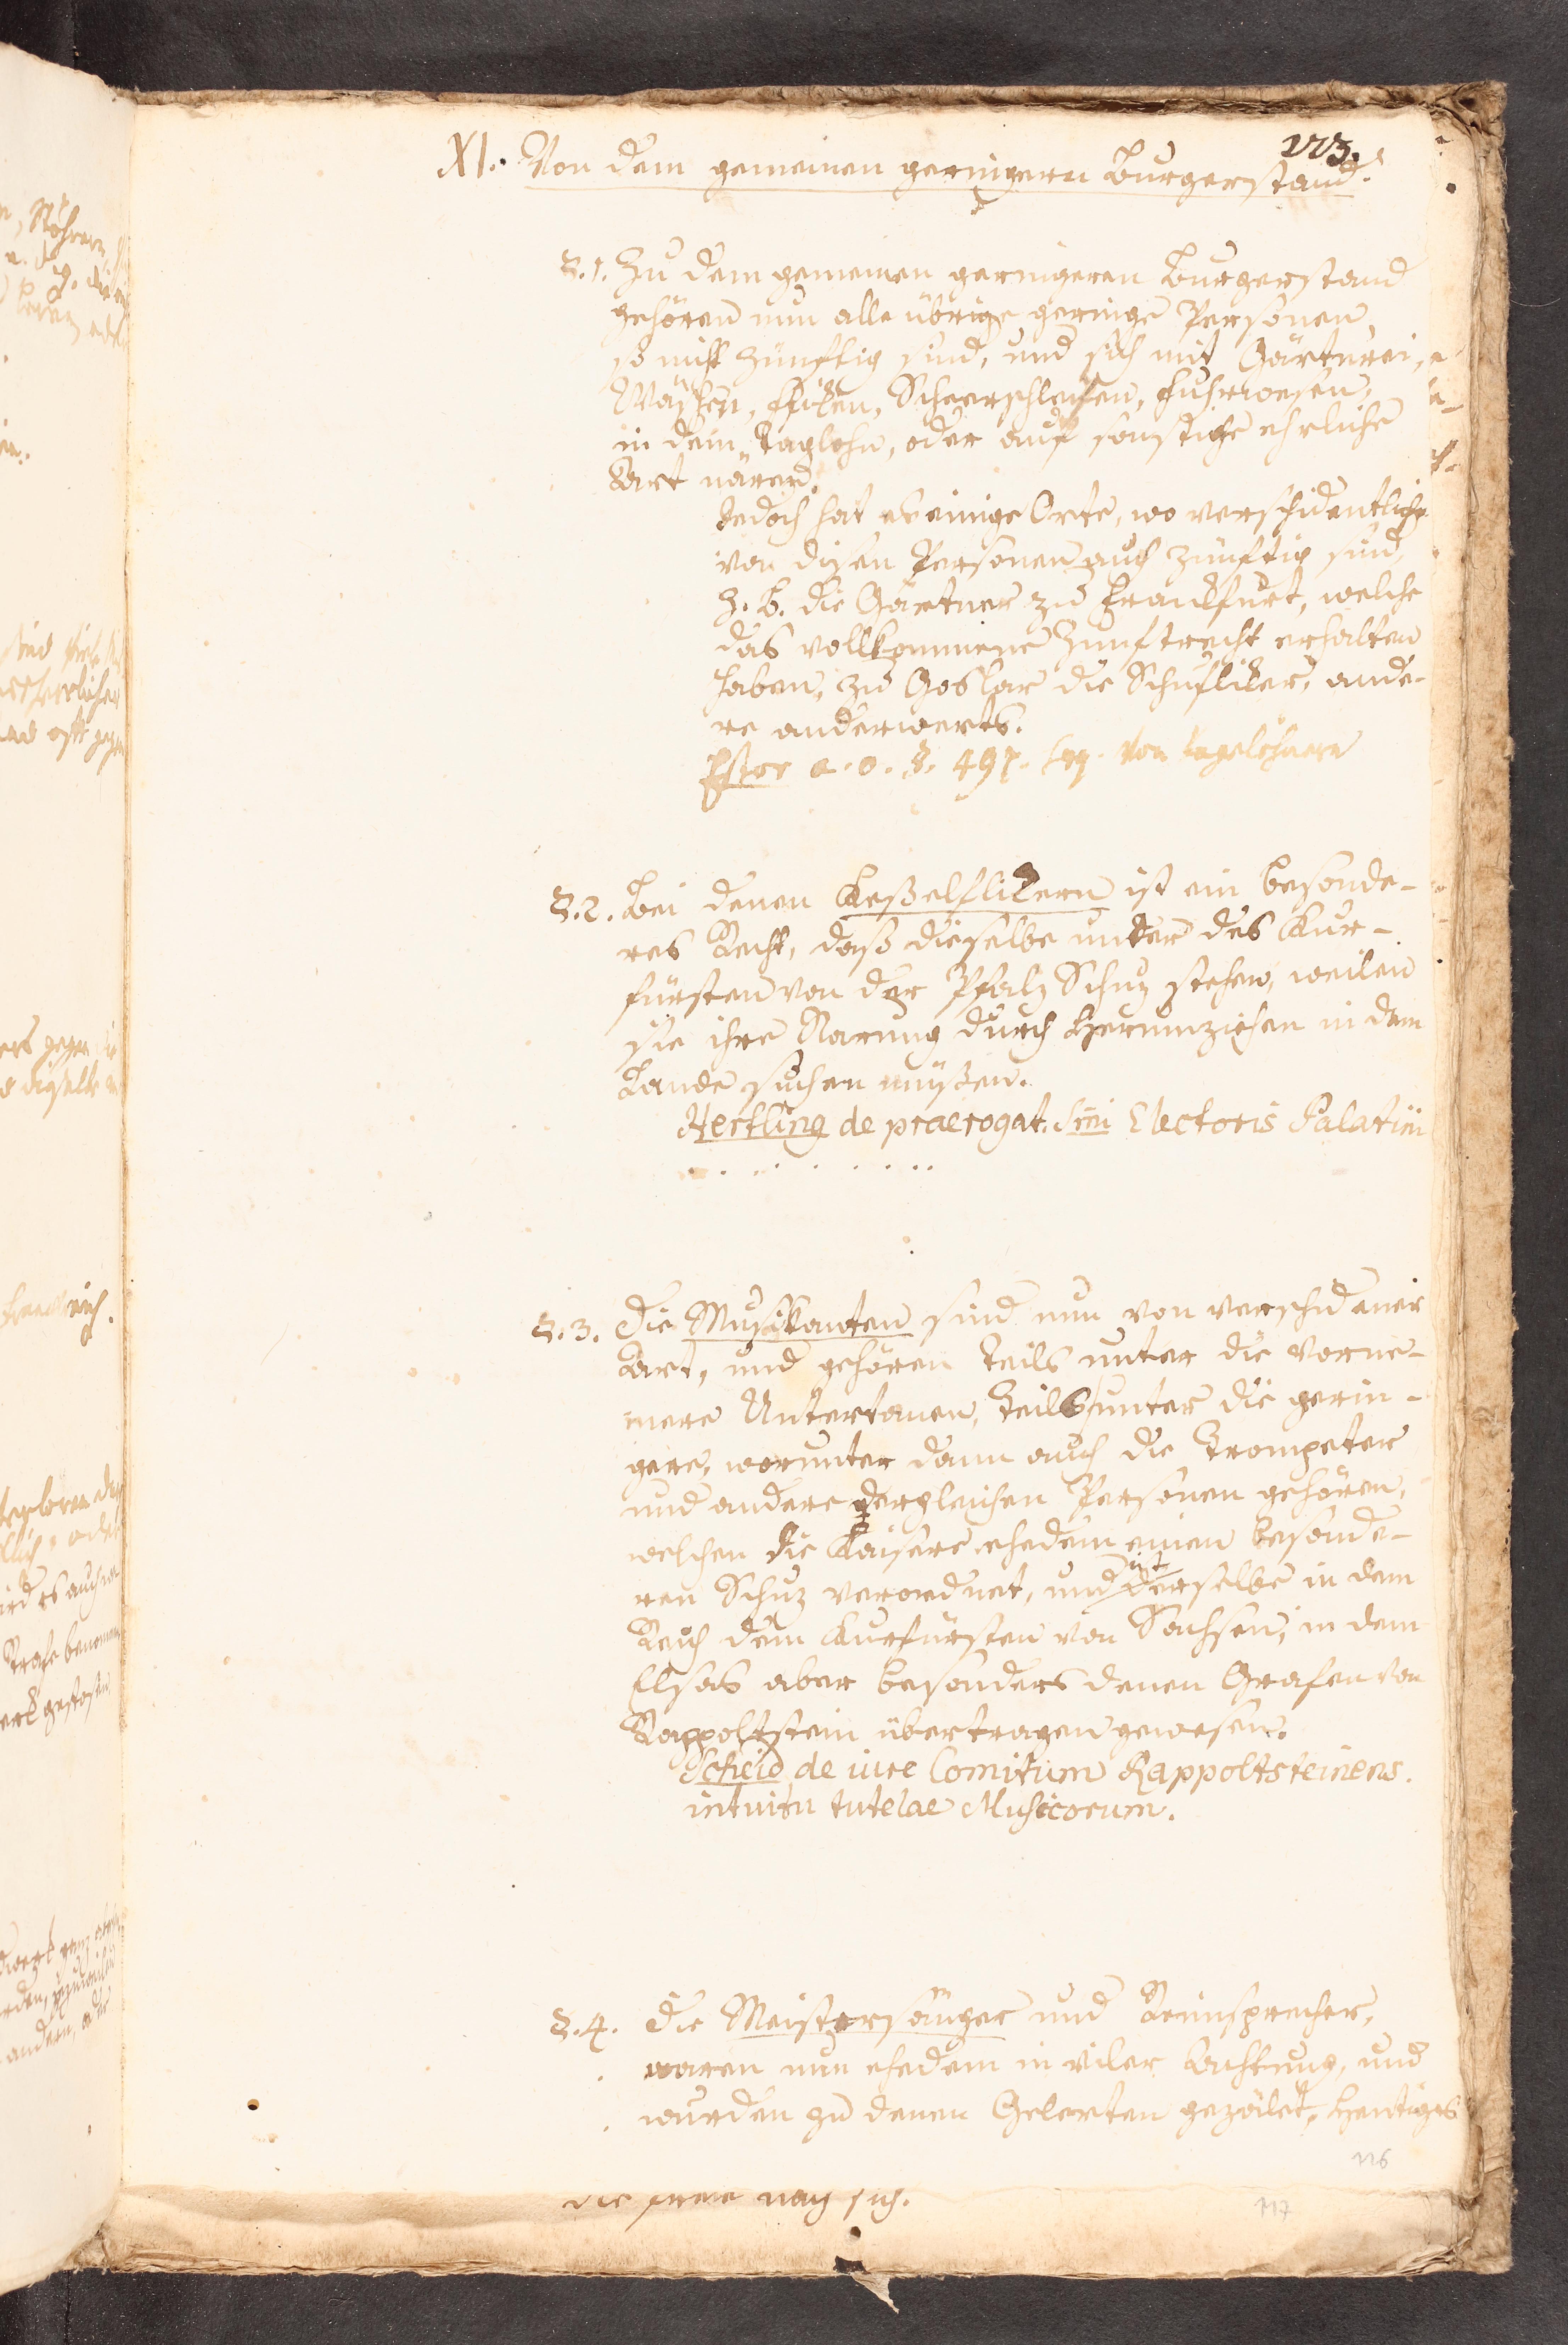 113.
XI. Von dem gemeinen geringern Burgerstand.
§.1. Zu dem gemeinen geringeren Burgerstand
gehören nun alle übrige geringe Personen,
so nicht zünftig sind, und sich mit Gärtnerei,
Waschen, Scheerschleifen, Fuhrwesen,
in dem Taglohn, oder auf sonstige ehrliche
Art nären.
Jedoch hat es einige Orte, wo verschidentliche
von disen Personen auch zünftig sind,
z. B. die Gärtner zu Frankfurt, welche
das vollkommene Zunftrecht erhalten
haben, zu Goslar die Schuflicker, ande-
re anderwerts.
Estor a. o. §. 497. seq. von tagelöhnern
§.2. Bei denen Keßelflickern ist ein besonde-
res Recht, daß dieselbe unter des Kur-
fürsten von der Pfalz Schuz stehen, weilen
sie ihre Narung durch Herumziehen in dem
Lande suchen müßen.
Hertling de praerogat. Smi Electoris Palatini
. . . . . . . . .
§.3. Die Musikanten sind nun von verschidener
Art, und gehören teils unter die vorne-
mere Untertanen, teils unter die gerin-
gere, worunter dann auch die Trompeter
und andere dergleichen Personen gehören,
welchen die Kaisere ehedem einen besonde-
ren Schuz verordnet, und ist derselbe in dem
Reich dem Kurfürsten von Sachsen, in dem
Elsas aber besonders denen Grafen von
Rappoltstein übertragen gewesen.
Scheid de iure Comitum Rappoltsteinens.
intuitu tutelae Musicorum.
§.4. Die Meistersänger und Reimsprecher,
waren nun ehedem in viler Achtung, und
wurden zu denen Gelerten gezälet, heutiges
116
117